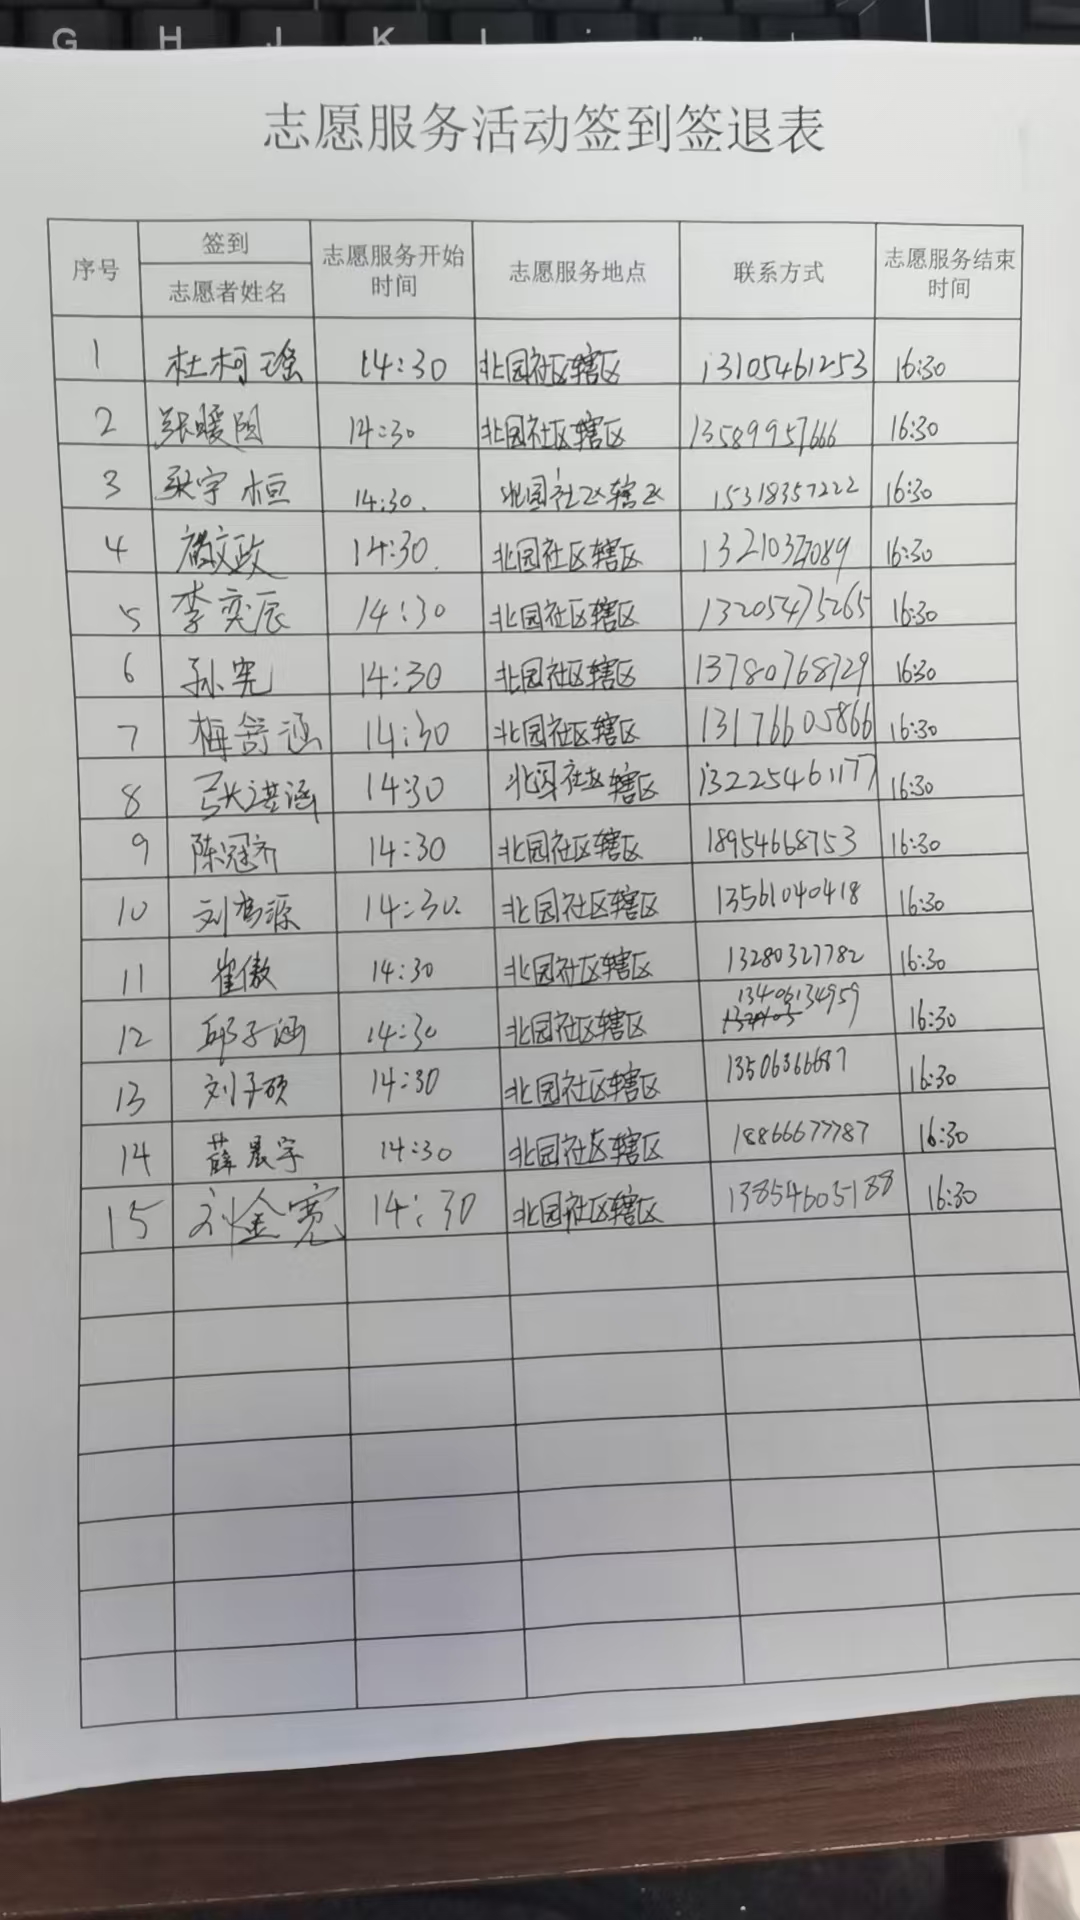 G H J K L ;
志愿服务活动签到签退表
序号 签到 志愿者姓名 志愿服务开始时间 志愿服务地点 联系方式 志愿服务结束时间
1 杜柯瑶 14:30 北园社区辖区 13105461253 16:30
2 张暖阳 14:30 北园社区辖区 13589957666 16:30
3 梁宇桓 14:30. 北园社区辖区 15318357222 16:30
4 文政 14:30. 北园社区辖区 16:30
5 李奕辰 14:30 北园社区辖区 13205475265 16:30
6 孙宪 14:30 北园社区辖区 13780768729 16:30
7 梅舒涵 14:30 北园社区辖区 13176605866 16:30
8 张洪涵 14:30 北园社区辖区 13225461177 16:30
9 陈冠齐 14:30 北园社区辖区 18954668753 16:30
10 刘源 14:30. 北园社区辖区 13561040418 16:30
11 崔傲 14:30 北园社区辖区 13280327782 16:30
12 邱子涵 14:30 北园社区辖区 13406134959 16:30
13 刘子硕 14:30 北园社区辖区 13506366687 16:30
14 薛晨宇 14:30 北园社区辖区 18866677787 16:30
15 刘金宽 14:30 北园社区辖区 13854605188 16:30